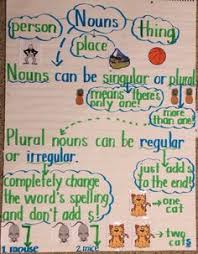 Nouns
person
thing
place
Nouns can be singular or plural
means there's
only one!
more
than one!
Plural nouns can be regular
or irregular.
completely change
the word's spelling
and don't add s!
just add s
to the end!
→one
cat
→two
cats
1. mouse
2. mice